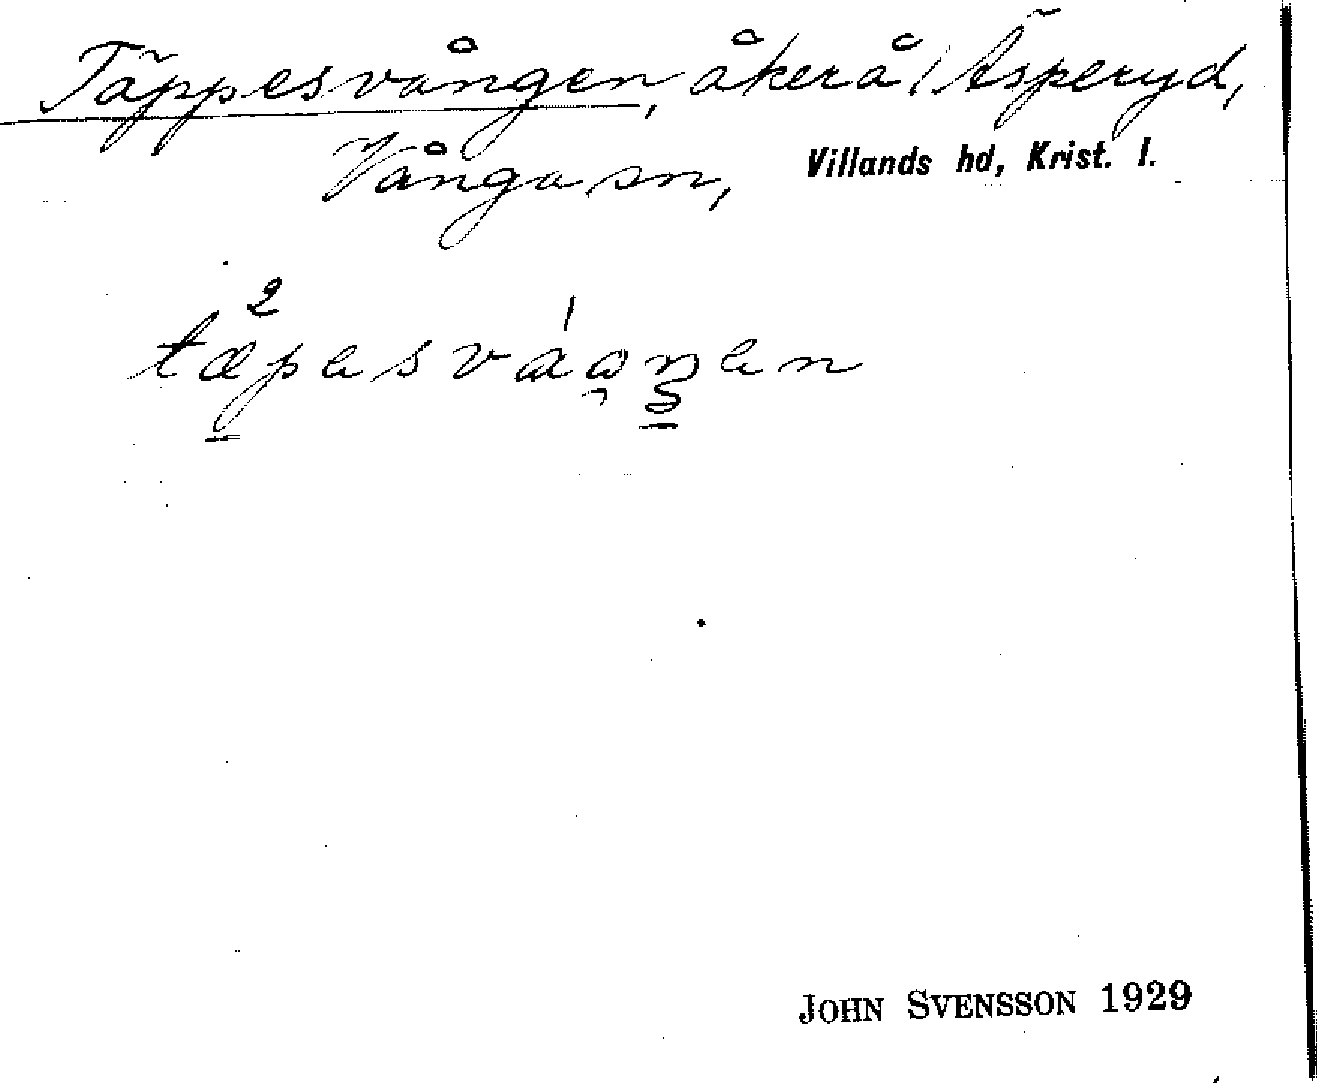 Täppesvången, åker å Äsperyd,
Vånga sn, Villands hd, Krist. l.
JOHN SVENSSON 1929